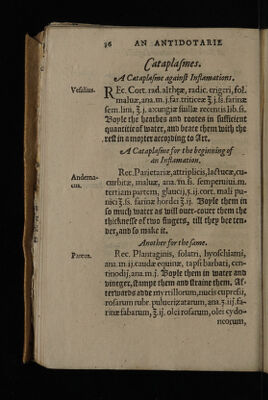 36 AN ANTIDOTARIE
Cataplasmes.
A Cataplasme against Inflamations.
Vesalius.
REc. Cort. rad. altheæ, radic. erigeri, fol.
maluæ, ana. m. j. far. triticeæ ℥ j. ss. farinæ
sem. lini, ℥. j. axungiæ suillæ recentis lib. ss.
Boyle the hearbes and rootes in sufficient
quantitie of water, and beate them with the
rest in a morter according to Art.
A Cataplasme for the beginning of
an Inflamation.
Andernacus.
Rec. Parietariæ, attriplicis, lactucæ, cu-
curbitæ, maluæ, ana. m. ss. semperuiui. m.
tertiam partem, glaucij, ℥. ij. cort. mali pu-
nici ℥. ss. farinæ hordei ℥. ij. Boyle them in
so much water as will ouer-couer them the
thicknesse of two fingers, till they bee ten-
der, and so make it.
Another for the same.
Pareus.
Rec. Plantaginis, solatri, hyoschiami,
ana. m. ij. caudæ equinæ, tapsi barbati, cen-
tinodij, ana. m. j. Boyle them in water and
vineger, stampe them and straine them. Af-
terwards adde myrtillorum, nucis cupressi,
rosarum rubr. puluerizatarum, ana. ℥. iij. fa-
rinæ fabarum, ℥. ij. olei rosarum, olei cydo-
neorum,